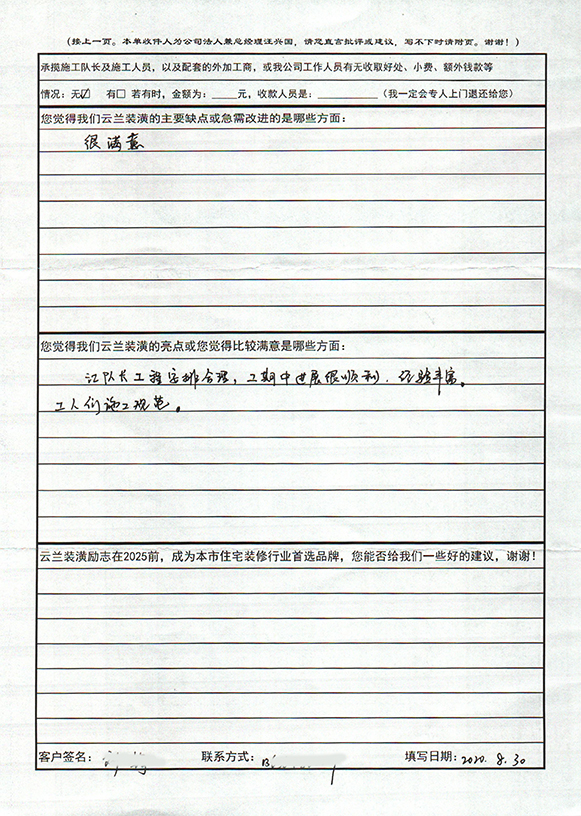 (接上一页。本单收件人为公司法人兼总经理汪兴国,请您直言批评或建议,写不下时请附页。谢谢!)
承揽施工队长及施工人员,以及配套的外加工商,或我公司工作人员有无收取好处、小费、额外钱款等
情况:无☑ 有□ 若有时,金额为:____元,收款人员是:__________(我一定会专人上门退还给您)
您觉得我们云兰装潢的主要缺点或急需改进的是哪些方面:
很满意
您觉得我们云兰装潢的亮点或您觉得比较满意是哪些方面:
江队长工程安排合理,工期中进展很顺利,经验丰富。
工人们施工规范。
云兰装潢励志在2025前,成为本市住宅装修行业首选品牌,您能否给我们一些好的建议,谢谢!
客户签名: 联系方式: 填写日期:2020.8.30